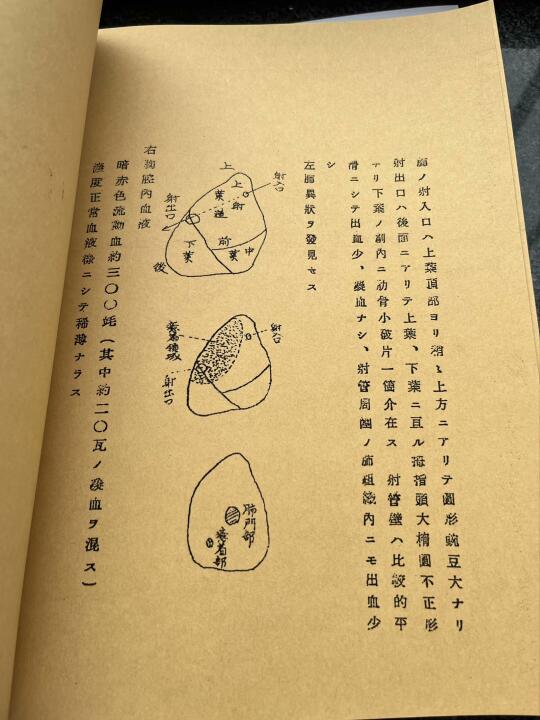 肺ノ射入口ハ上葉頂部ヨリ稍〻上方ニアリテ圓形豌豆大ナリ
射出口ハ後面ニアリテ上葉、下葉ニ亘ル拇指頭大橢圓不正形
ナリ下葉ノ創內ニ肋骨小破片一箇介在ス 射管壁ハ比較的平
滑ニシテ出血少、凝血ナシ、射管周圍ノ肺組織內ニモ出血少
シ
左肺異狀ヲ發見セス
上
射入口
上葉
射
前
中葉
下葉
射出口
後
射入口
癒着領域
射出口
肺門部
癒着部
右胸腔內血液
暗赤色流動血約三〇〇竓(其中約二〇瓦ノ凝血ヲ混ス)
濃度正常血液樣ニシテ稀薄ナラス